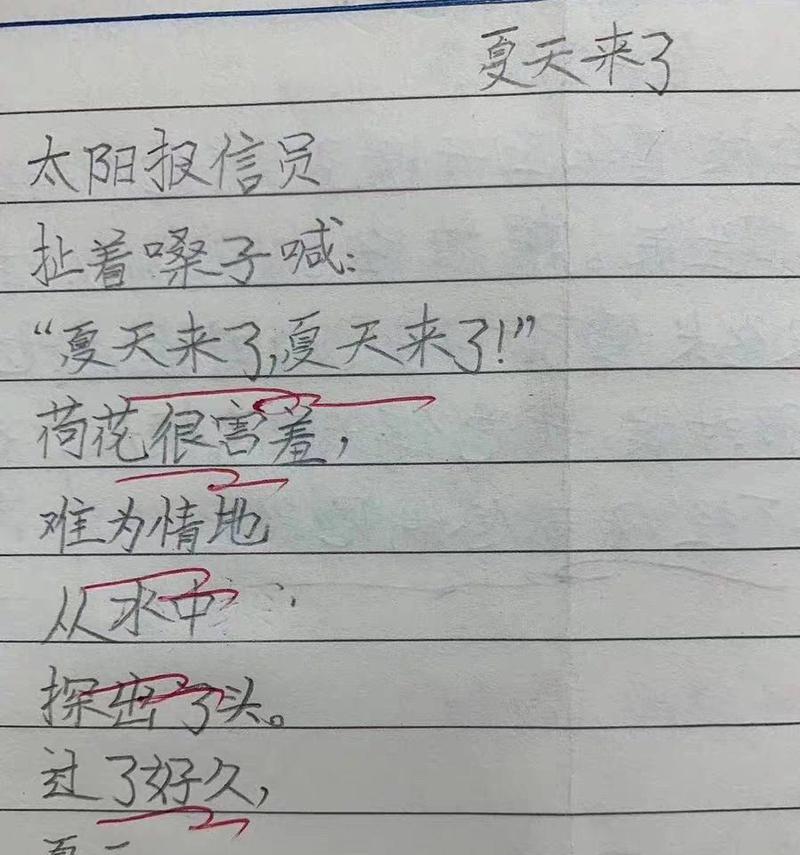 夏天来了
太阳报信员
扯着嗓子喊：
“夏天来了，夏天来了！”
荷花很害羞，
难为情地
从水中
探出了头。
过了好久，